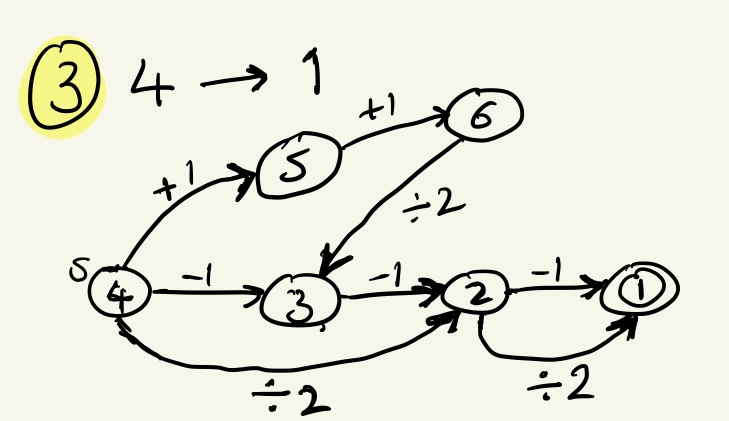 3 4 → 1
+1
6
+1
5
÷2
S
4
-1
3
-1
2
-1
1
÷2
÷2